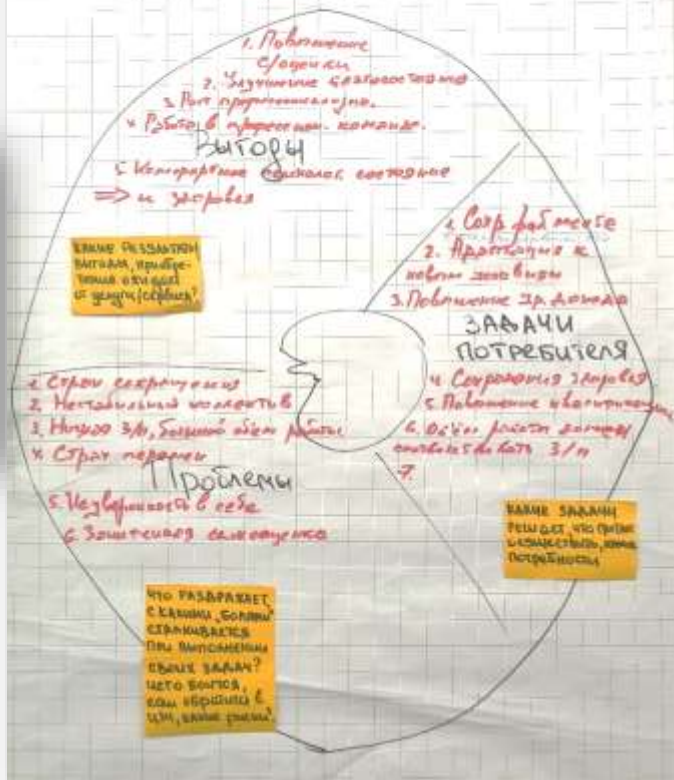 1. Повышение
с/оценки
2. Улучшение благосостояния
3. Рост профессионализма.
4. Работа в профессион. команде.
Выгоды
5. Комфортное психолог. состояние
=> и здоровья
КАКИЕ РЕЗУЛЬТАТЫ
ВЫГОДЫ, приобре-
тения ожидает
от услуги/сервиса?
1. Сохр. раб. места
2. Адаптация к
новым условиям
3. Повышение ур. дохода
ЗАДАЧИ
ПОТРЕБИТЕЛЯ
4. Сохранения здоровья
5. Повышение квалификации
6. Объём работы должен
соответствовать З/п
7.
1. Страх сокращения
2. Нестабильный коллектив
3. Низкая З/п, большой объем работы
4. Страх перемен
Проблемы
5. Неуверенность в себе
6. Заниженная самооценка
КАКИЕ ЗАДАЧИ
РЕШАЕТ, что
потребности
ЧТО РАЗДРАЖАЕТ,
С КАКИМИ „БОЛЯМИ"
СТАЛКИВАЕТСЯ
ПРИ ВЫПОЛНЕНИИ
СВОИХ ЗАДАЧ?
ЧЕГО БОИТСЯ,
если обратился в
ЦЗН, какие риски?